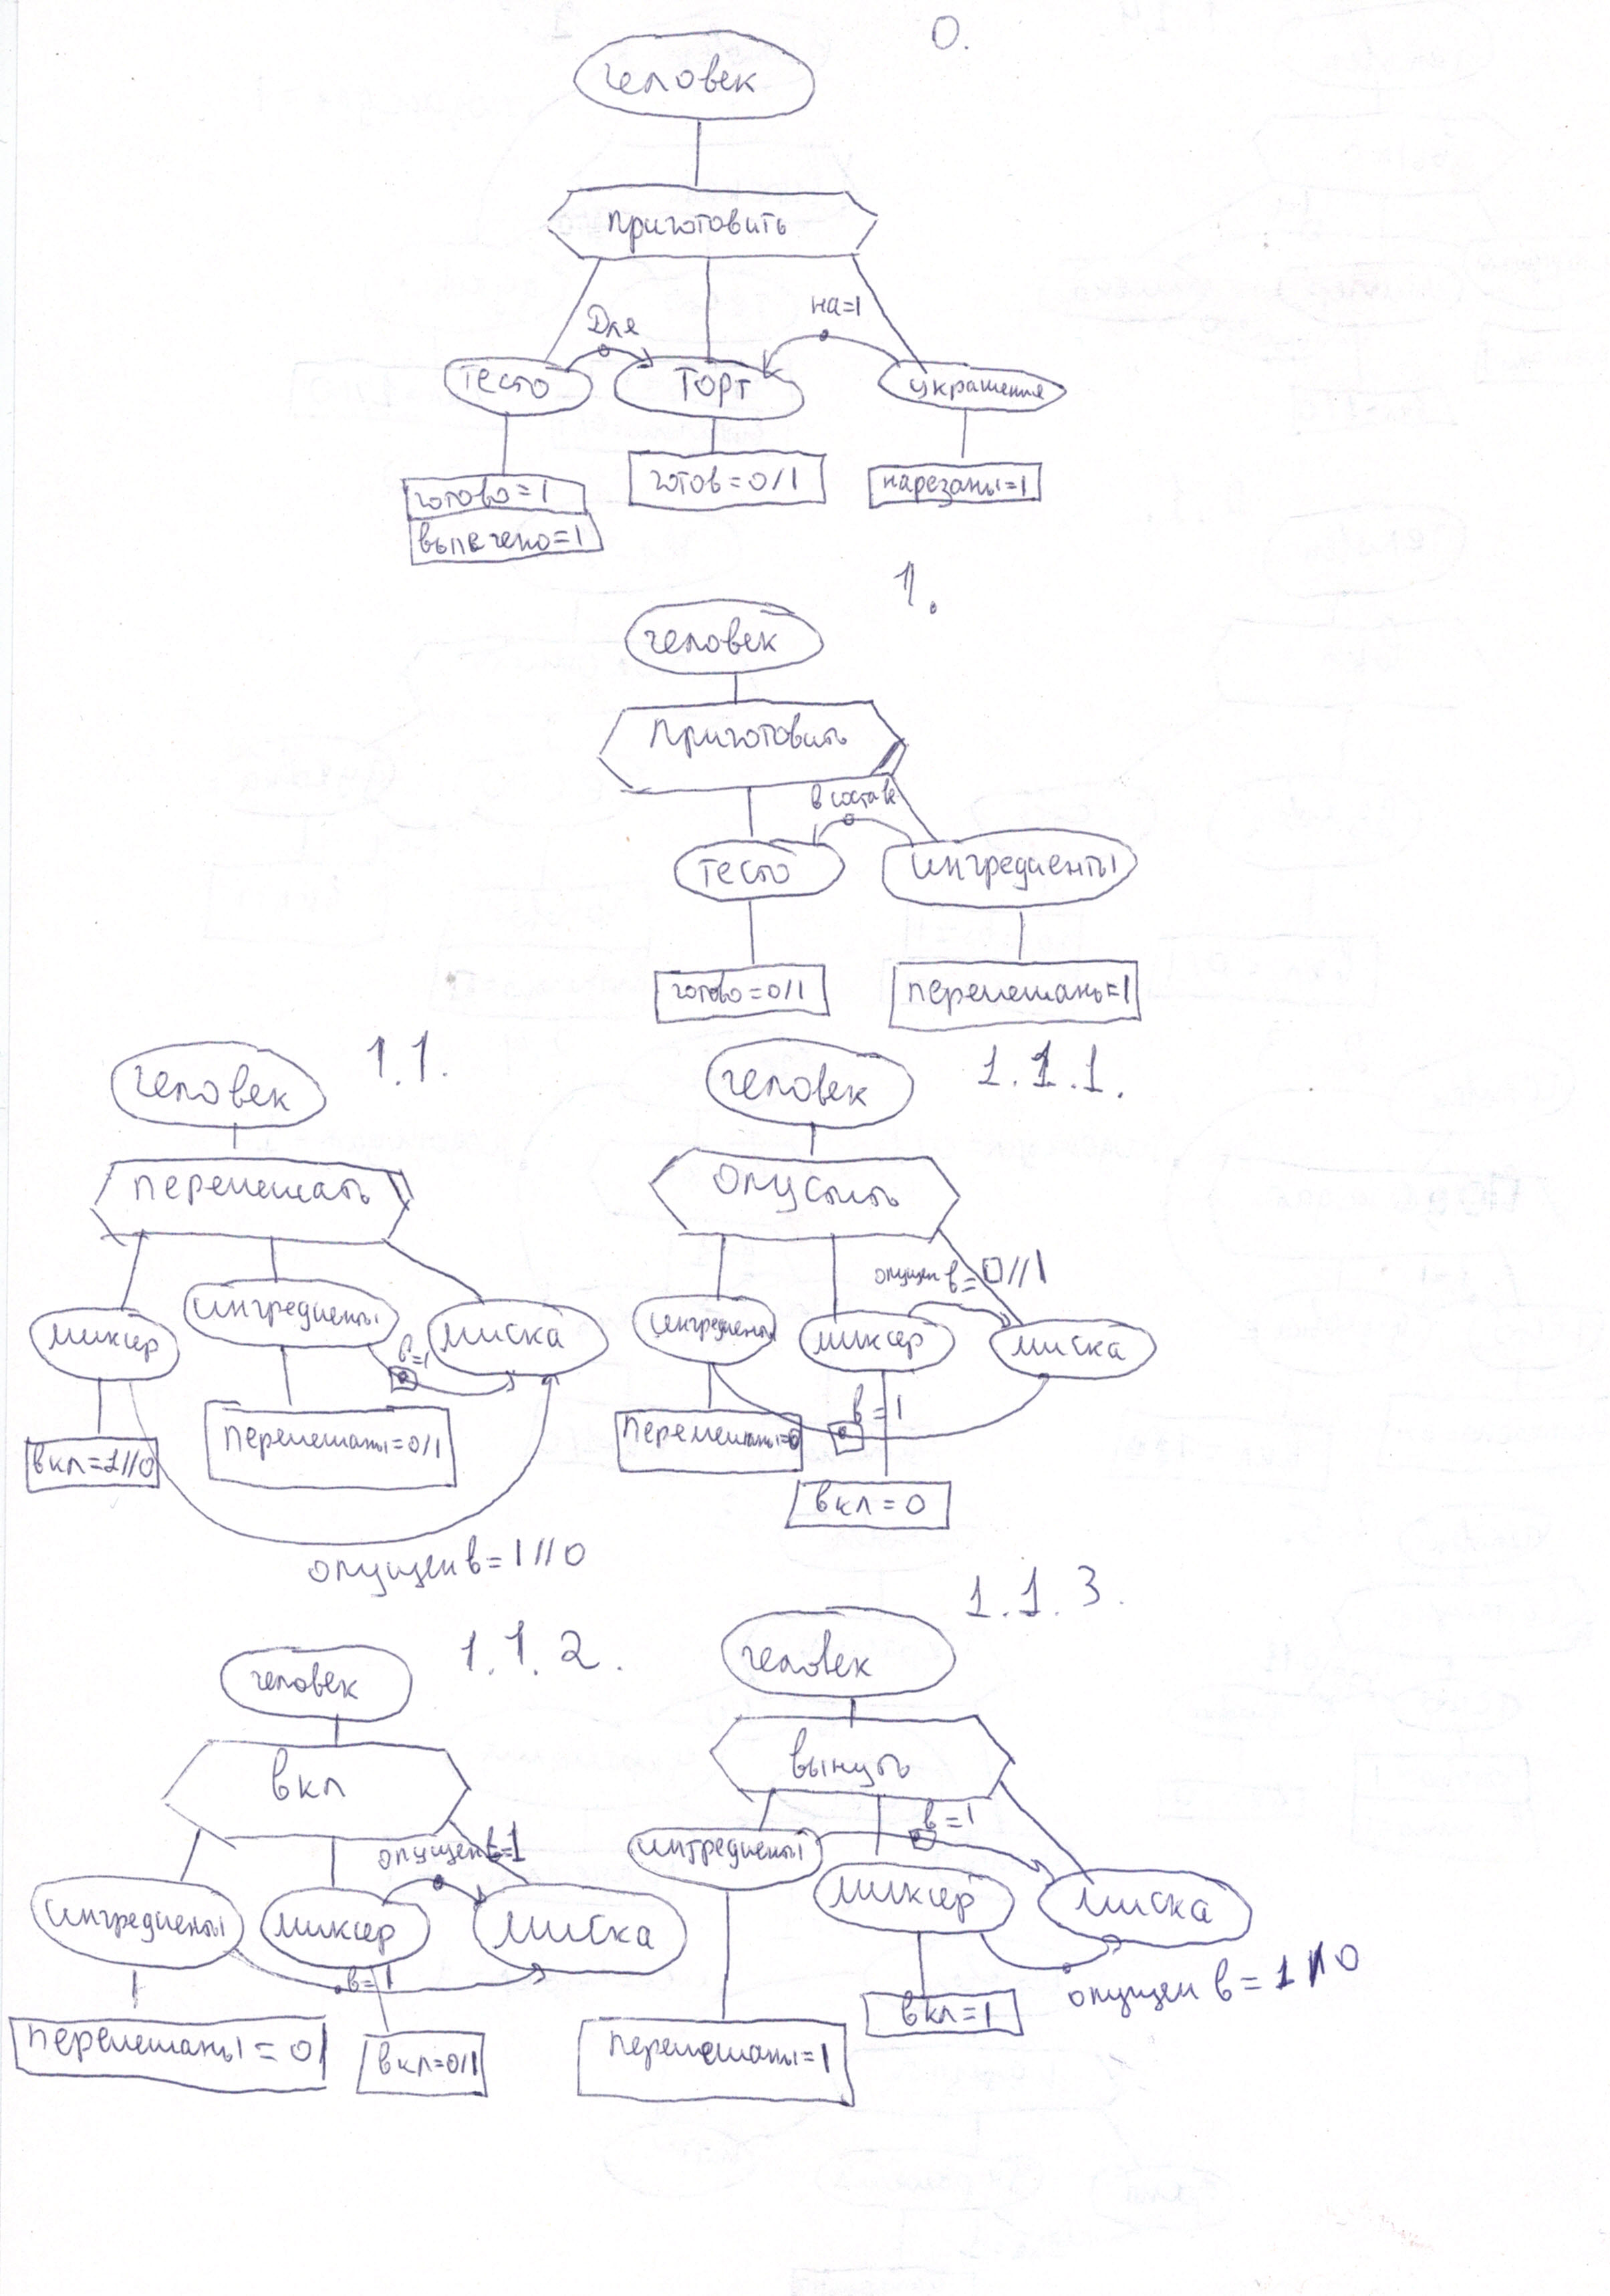 0.
человек
приготовить
Для
на=1
тесто
торт
украшения
готово=1
выпечено=1
готов=0/1
нарезаны=1
1.
человек
приготовить
в составе
тесто
ингредиенты
готово=0/1
перемешаны=1
1.1.
человек
перемешать
миксер
ингредиенты
миска
в=1
вкл=1//0
перемешаны=0/1
опущен в=1//0
1.1.1.
человек
опустить
опущен в=0//1
ингредиенты
миксер
миска
в=1
перемешаны=0
вкл=0
1.1.2.
человек
вкл
опущен в=1
ингредиенты
миксер
миска
в=1
перемешаны=0
вкл=0/1
1.1.3.
человек
вынуть
в=1
ингредиенты
миксер
миска
опущен в=1/0
вкл=1
перемешаны=1